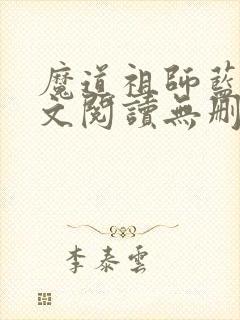 魔道祖師藍
文閱讀無刪
李泰雲